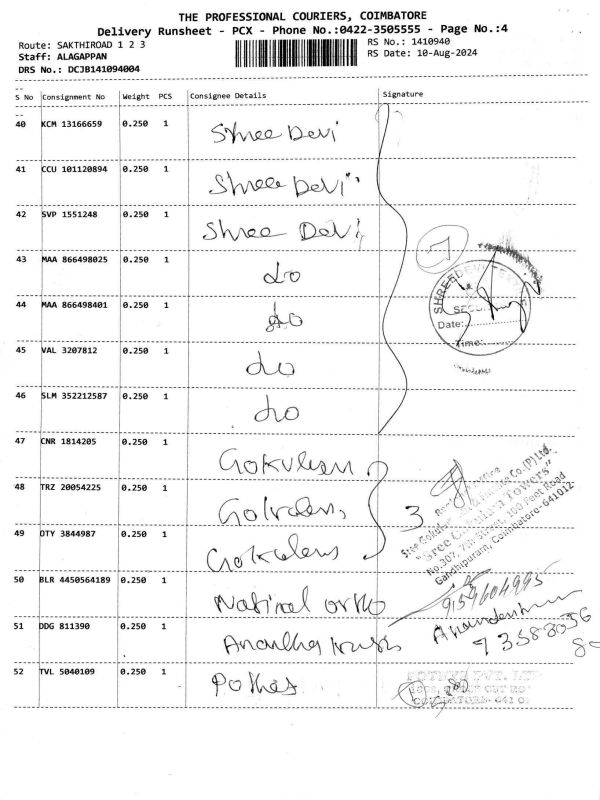 THE PROFESSIONAL COURIERS, COIMBATORE
Delivery Runsheet - PCX - Phone No.:0422-3505555 - Page No.:4
Route: SAKTHIROAD 1 2 3
RS No.: 1410940
Staff: ALAGAPPAN
RS Date: 10-Aug-2024
DRS No.: DCJB141094004
S No Consignment No Weight PCS Consignee Details Signature
40 KCM 13166659 0.250 1 Shree Devi
41 CCU 101120894 0.250 1 Shree Devi
42 SVP 1551248 0.250 1 Shree Devi
43 MAA 866498025 0.250 1 do
44 MAA 866498401 0.250 1 do
45 VAL 3207812 0.250 1 do
46 SLM 352212587 0.250 1 do
7
SHREEDEVI
SECURITY
Date:
Time:
47 CNR 1814205 0.250 1 Gokulam
48 TRZ 20054225 0.250 1
49 OTY 3844987 0.250 1
3
Sree Gokulam Chit & Finance Co.(P) Ltd.
"Sree Gokulam Towers"
No.307, 7th Street, 100 Feet Road
Gandhipuram, Coimbatore-641012.
50 BLR 4450564189 0.250 1 National ortho
51 DDG 811390 0.250 1
52 TVL 5040109 0.250 1 Pothes
POTHYS PVT. LTD
COIMBATORE- 641 01